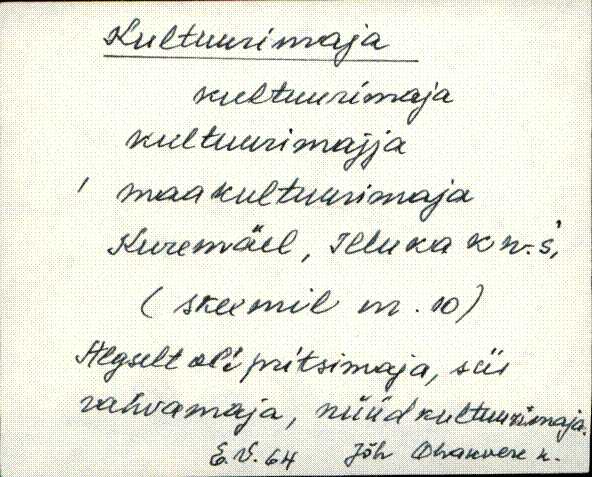 Kultuurimaja
kultuurimaja
kultuurimajja
maakultuurimaja
Kuremäel, Illuka k n.-s,
(skeemil nr. 10)
Algselt oli pritsimaja, siis
rahvamaja, nüüd kultuurimaja.
E.V. 64 Jõh Ohakvere k.